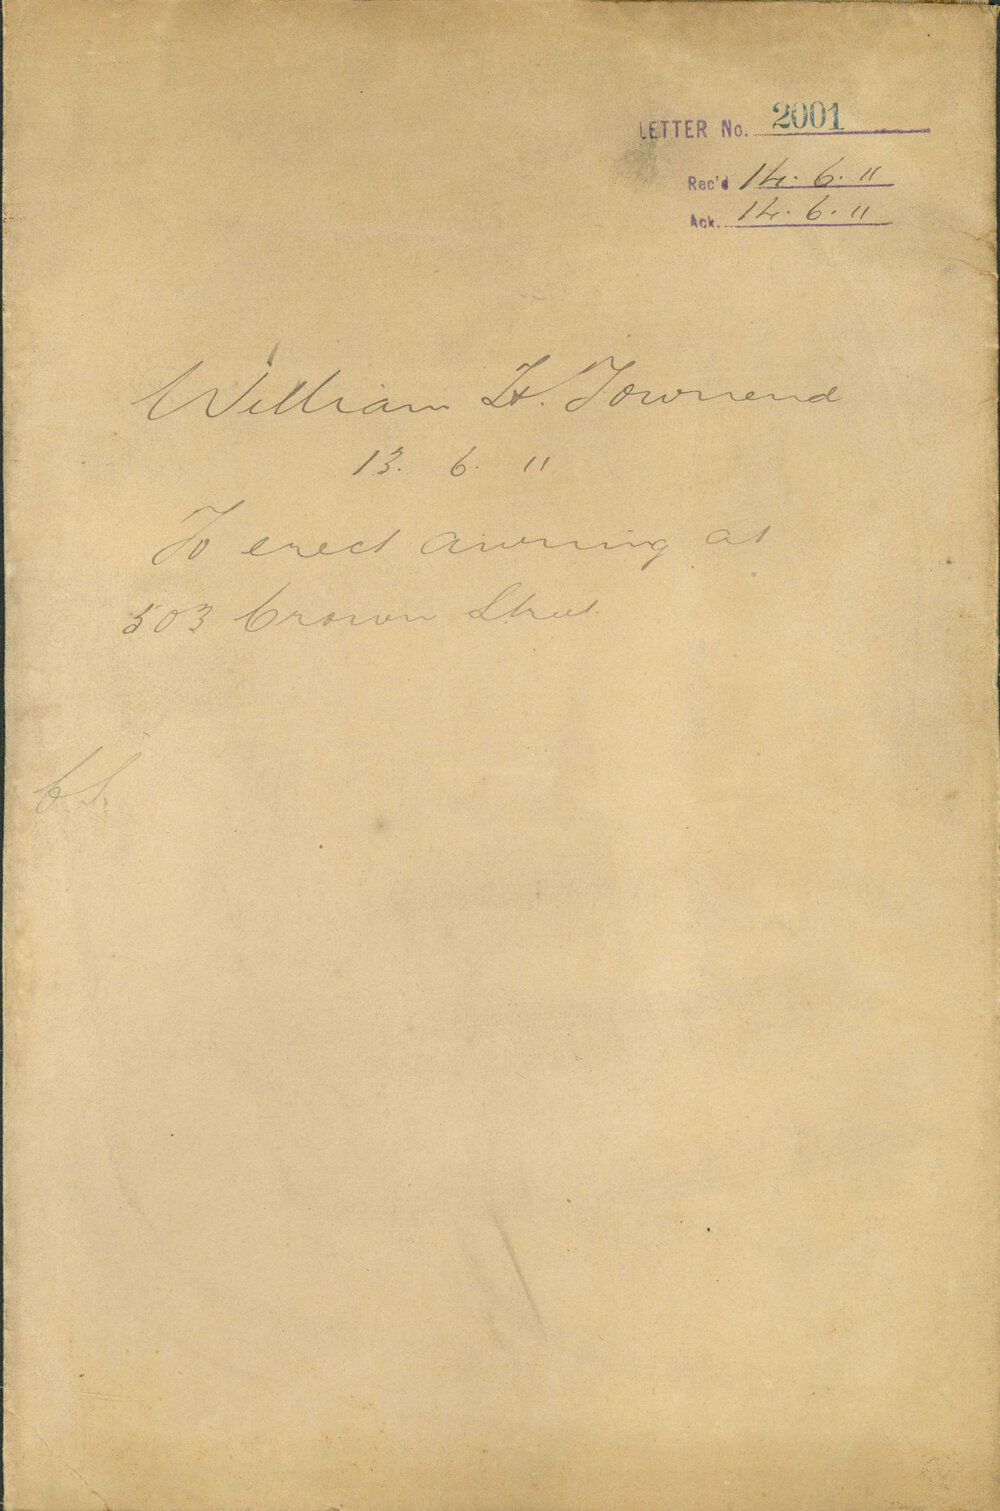 LETTER No. 2001
Rec'd 14. 6. 11
Ack. 14. 6. 11
William H. Townend
13. 6. 11
To erect awning at
503 Crown Street